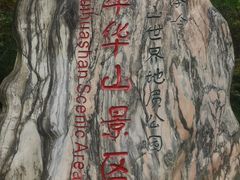 翠华山景区
uihuashan Scenic Area
山世界地质公园